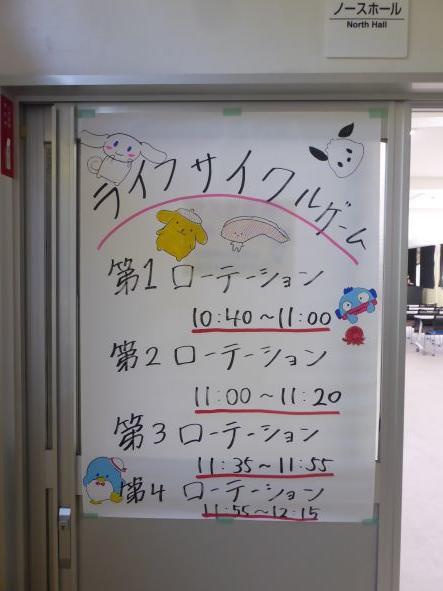 ノースホール
North Hall
ライフサイクルゲーム
第1 ローテーション
10:40~11:00
第2 ローテーション
11:00~11:20
第3 ローテーション
11:35~11:55
第4 ローテーション
11:55~12:15